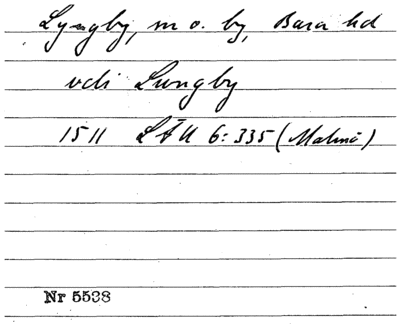 Lyngby, m o. by, Bara hd
vdi Lungby
1511 LÄU 6:335 (Malmö)
Nr 5538